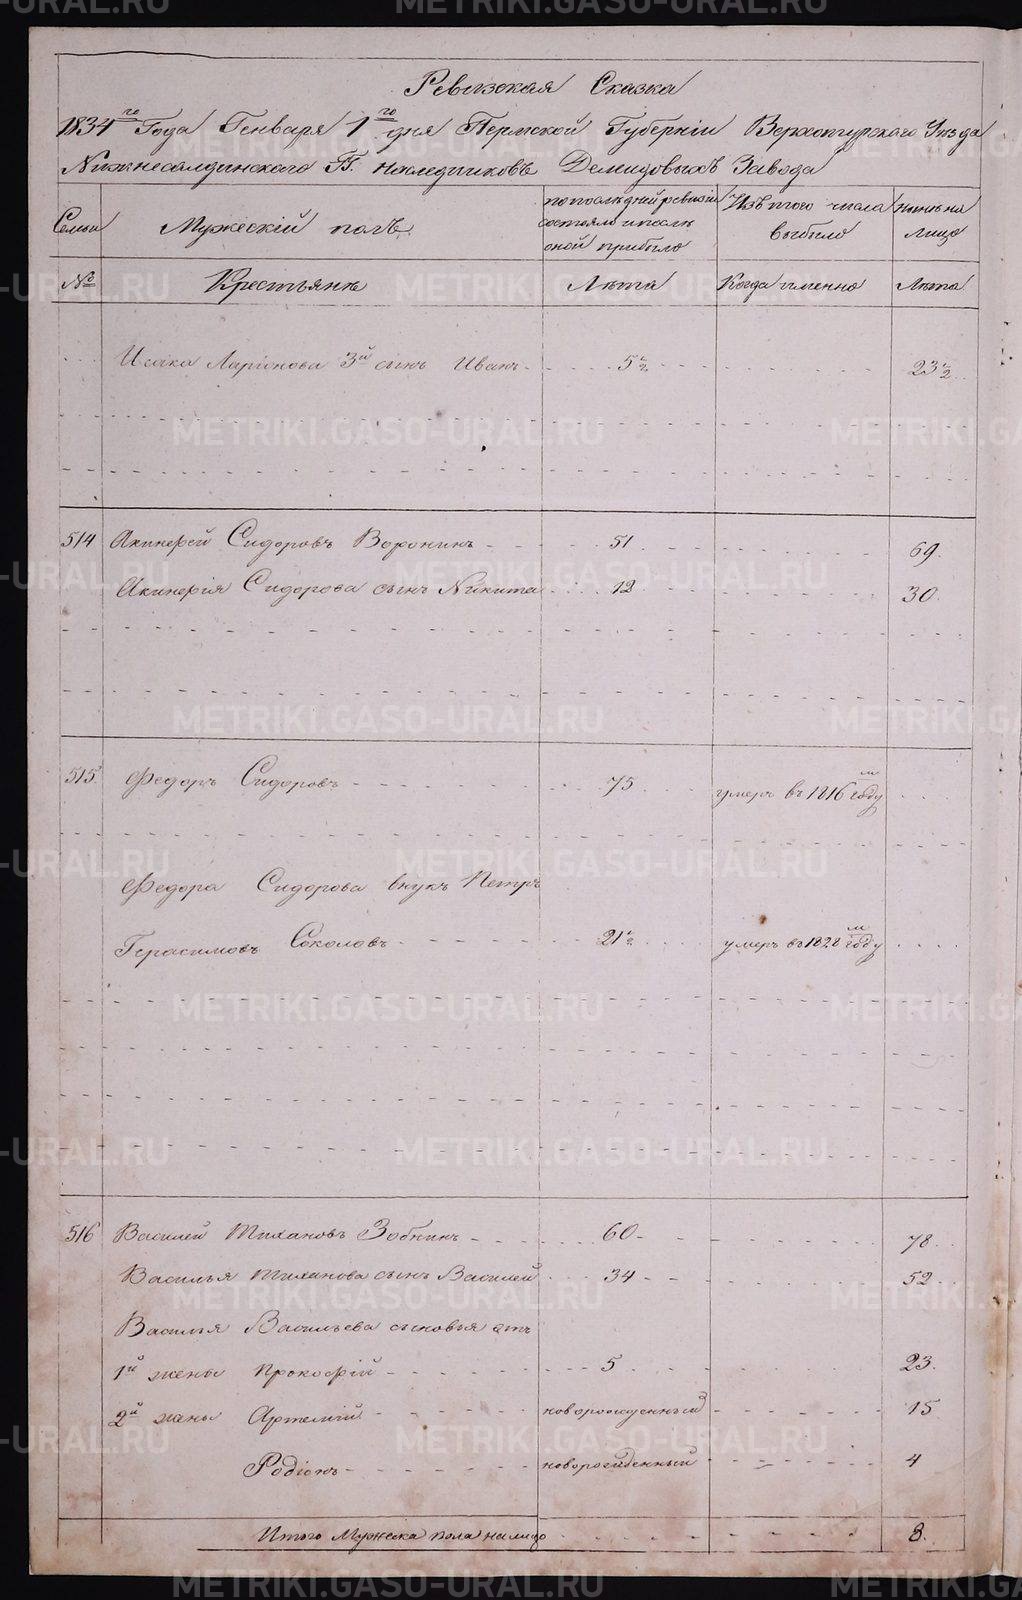 Ревизская Сказка
1834го Года Генваря 1го дня Пермской Губерніи Верхотурскаго Уезда
Нижнесалдинскаго Гг. Наследниковъ Демидовыхъ Завода
Семьи
Мужескій полъ
по последней ревизіи
состояло и после
оной прибыло
Изъ того числа
выбыло
ныне на
лицо
№
Крестьяне
Лета
Когда именно
Лета
Исака Ларіонова 3й сынъ Иванъ 5 1/2 23 1/2
514 Акинфей Сидоровъ Воронинъ 51 69
Акинфія Сидорова сынъ Никита 12 30
515 Федоръ Сидоровъ 75 умеръ въ 1816м году
Федора Сидорова внукъ Петръ
Герасимовъ Соколовъ 21 1/2 умеръ въ 1828м году
516 Василей Тихановъ Зобнинъ 60 78
Василья Тиханова сынъ Василей 34 52
Василья Васильева сыновья отъ
1й жены Прокофій 5 23
2й жены Артемій новорожденный 15
Родіонъ новорожденный 4
Итого Мужеска пола налицо 8
METRIKI.GASO-URAL.RU